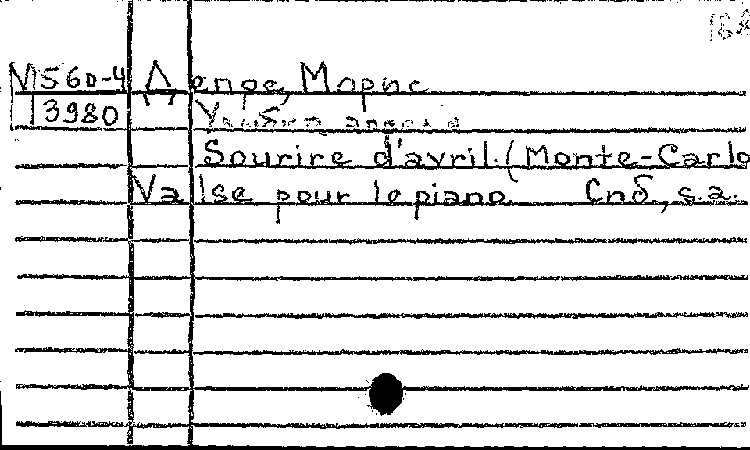 168
М560-4 Депре, Морис
13980 Улыбка апреля
Sourire d'avril. (Monte-Carlo
Valse pour le piano Спб, s.a.